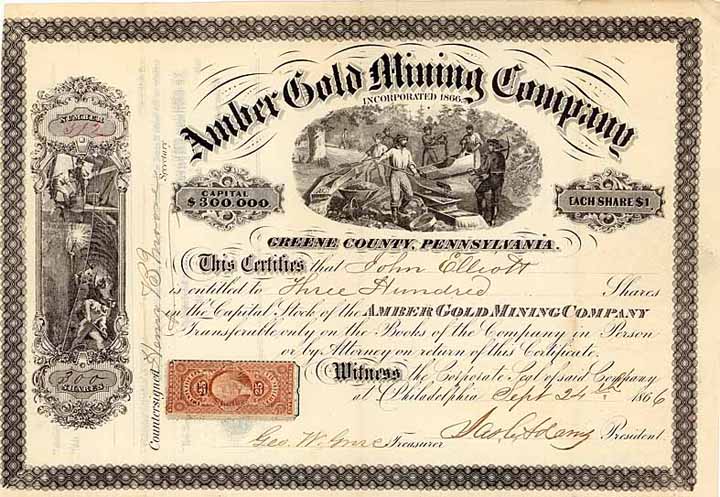 Amber Gold Mining Company
INCORPORATED 1866.
NUMBER
CAPITAL
$300.000
EACH SHARE $1
GREENE COUNTY, PENNSYLVANIA.
This Certifies that John Elliott
is entitled to Three Hundred Shares
in the Capital Stock of the AMBER GOLD MINING COMPANY
Transferable only on the Books of the Company in Person
or by Attorney on return of this Certificate.
Witness the Corporate Seal of said Company
at Philadelphia Sept 24th 1866
SHARES
Countersigned
Secretary
Geo. W. Treasurer
President